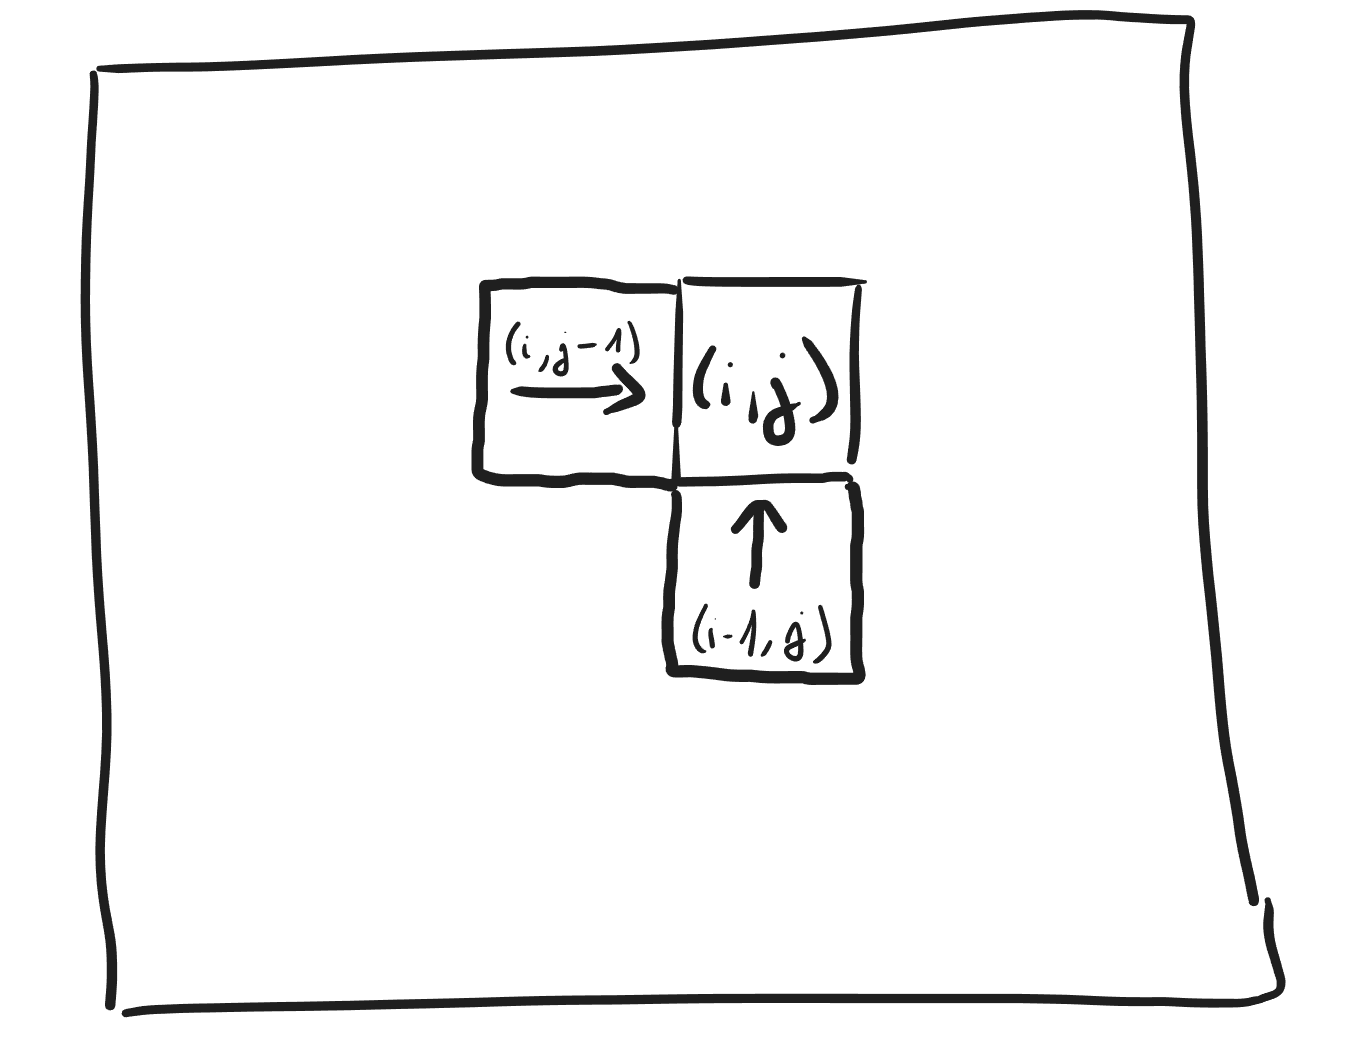 (i,j-1)
(i,j)
(i-1,j)